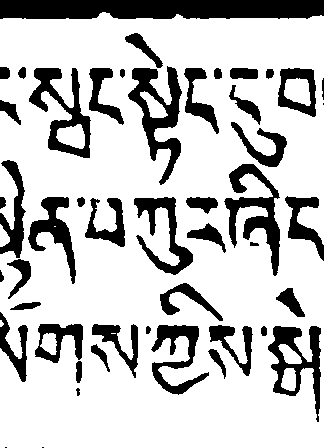 སྤང་སྟེང་དུ་བ
སྙེན་བཀུར་ཞིང
སོགས་ཀྱིས་སྒེ